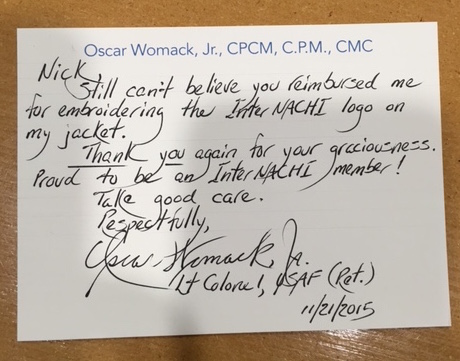 Oscar Womack, Jr., CPCM, C.P.M., CMC
Nick,
Still can't believe you reimbursed me
for embroidering the InterNACHI logo on
my jacket.
Thank you again for your graciousness.
Proud to be an InterNACHI member!
Take good care.
Respectfully,
Oscar Womack, Jr.
Lt Colonel, USAF (Ret.)
11/21/2015